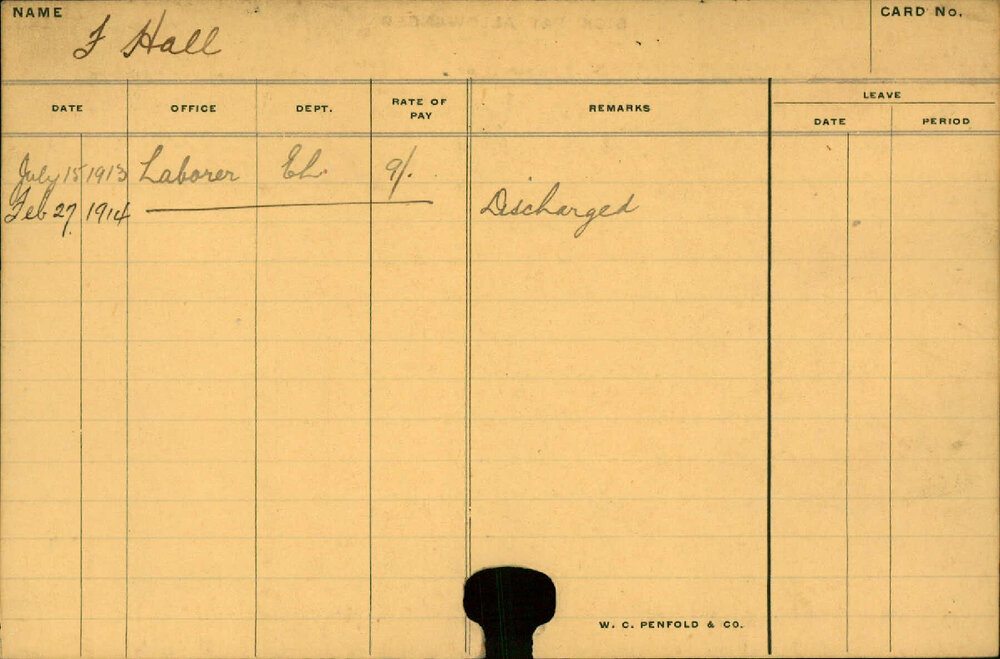 NAME
F Hall
CARD No.
DATE OFFICE DEPT. RATE OF PAY REMARKS LEAVE
DATE PERIOD
July 15 1913 Laborer EL. 9/.
Feb 27. 1914 Discharged
W. C. PENFOLD & CO.